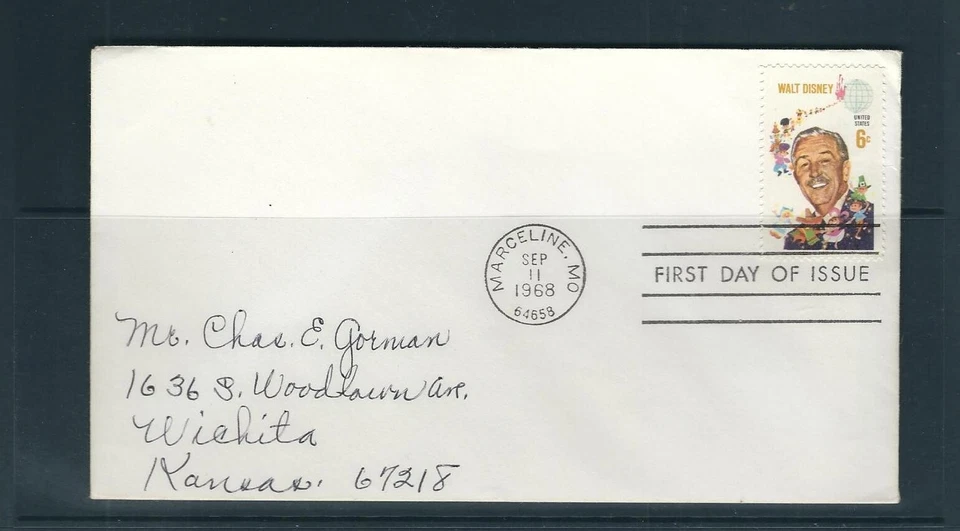 WALT DISNEY
UNITED
STATES
6c
MARCELINE, MO
SEP
11
1968
64658
FIRST DAY OF ISSUE
Mr. Chas. E. Gorman
1636 S. Woodlawn Ave.
Wichita
Kansas. 67218